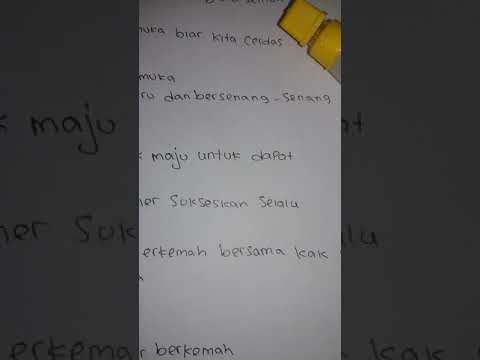 uka biar kita cerdas
muka
ru dan bersenang-senang
maju untuk dapat
er Sukseskan Selalu
erkemah bersama kak
r berkemah